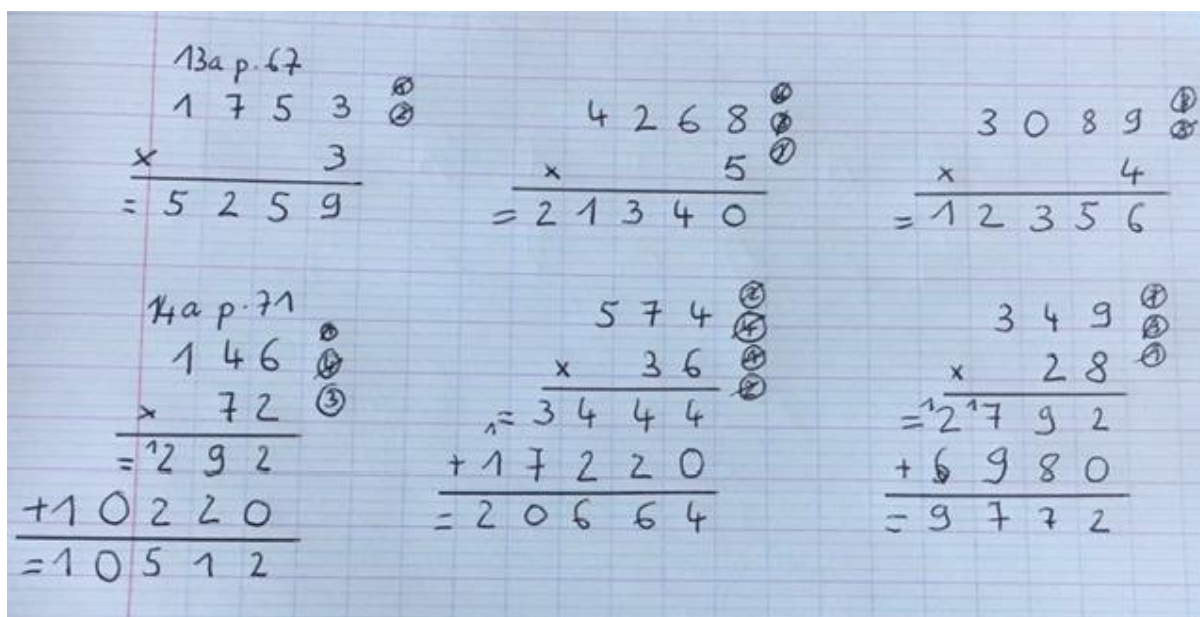 13a p. 67
1 7 5 3
× 3
= 5 2 5 9
4 2 6 8
× 5
= 2 1 3 4 0
3 0 8 9
× 4
= 1 2 3 5 6
14a p. 71
1 4 6
× 7 2 ③
= ¹2 9 2
+ 1 0 2 2 0
= 1 0 5 1 2
5 7 4
× 3 6
₁= 3 4 4 4
+ 1 7 2 2 0
= 2 0 6 6 4
3 4 9
× 2 8
= ¹2 ¹7 9 2
+ 6 9 8 0
= 9 7 7 2